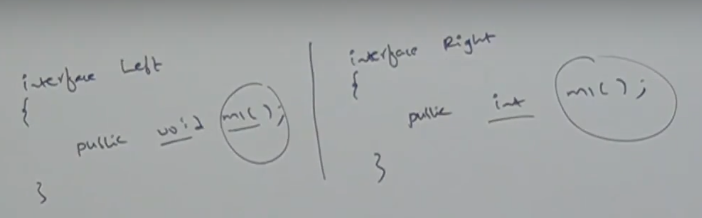 interface Left
{
public void m1();
}
interface Right
{
public int m1();
}